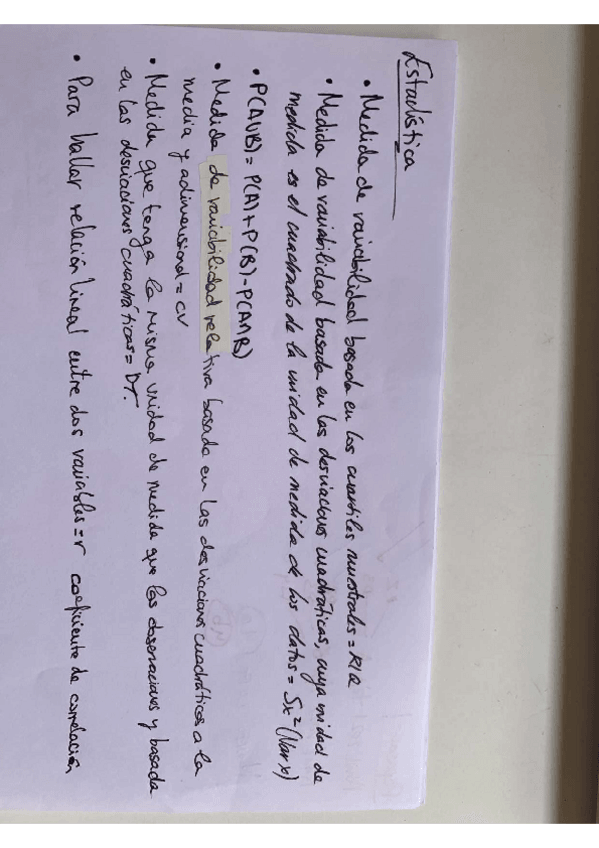 Estadística
• Medida de variabilidad basada en los cuartiles muestrales = RIQ
• Medida de variabilidad basada en las desviaciones cuadráticas, cuya unidad de
medida es el cuadrado de la unidad de medida de los datos = Sx² (Var x)
• P(A∪B) = P(A) + P(B) - P(A∩B)
• Medida de variabilidad relativa basada en las desviaciones cuadráticas a la
media y adimensional = CV
• Medida que tenga la misma unidad de medida que las observaciones y basada
en las desviaciones cuadráticas = DT.
• Para hallar relación lineal entre dos variables = r coeficiente de correlación